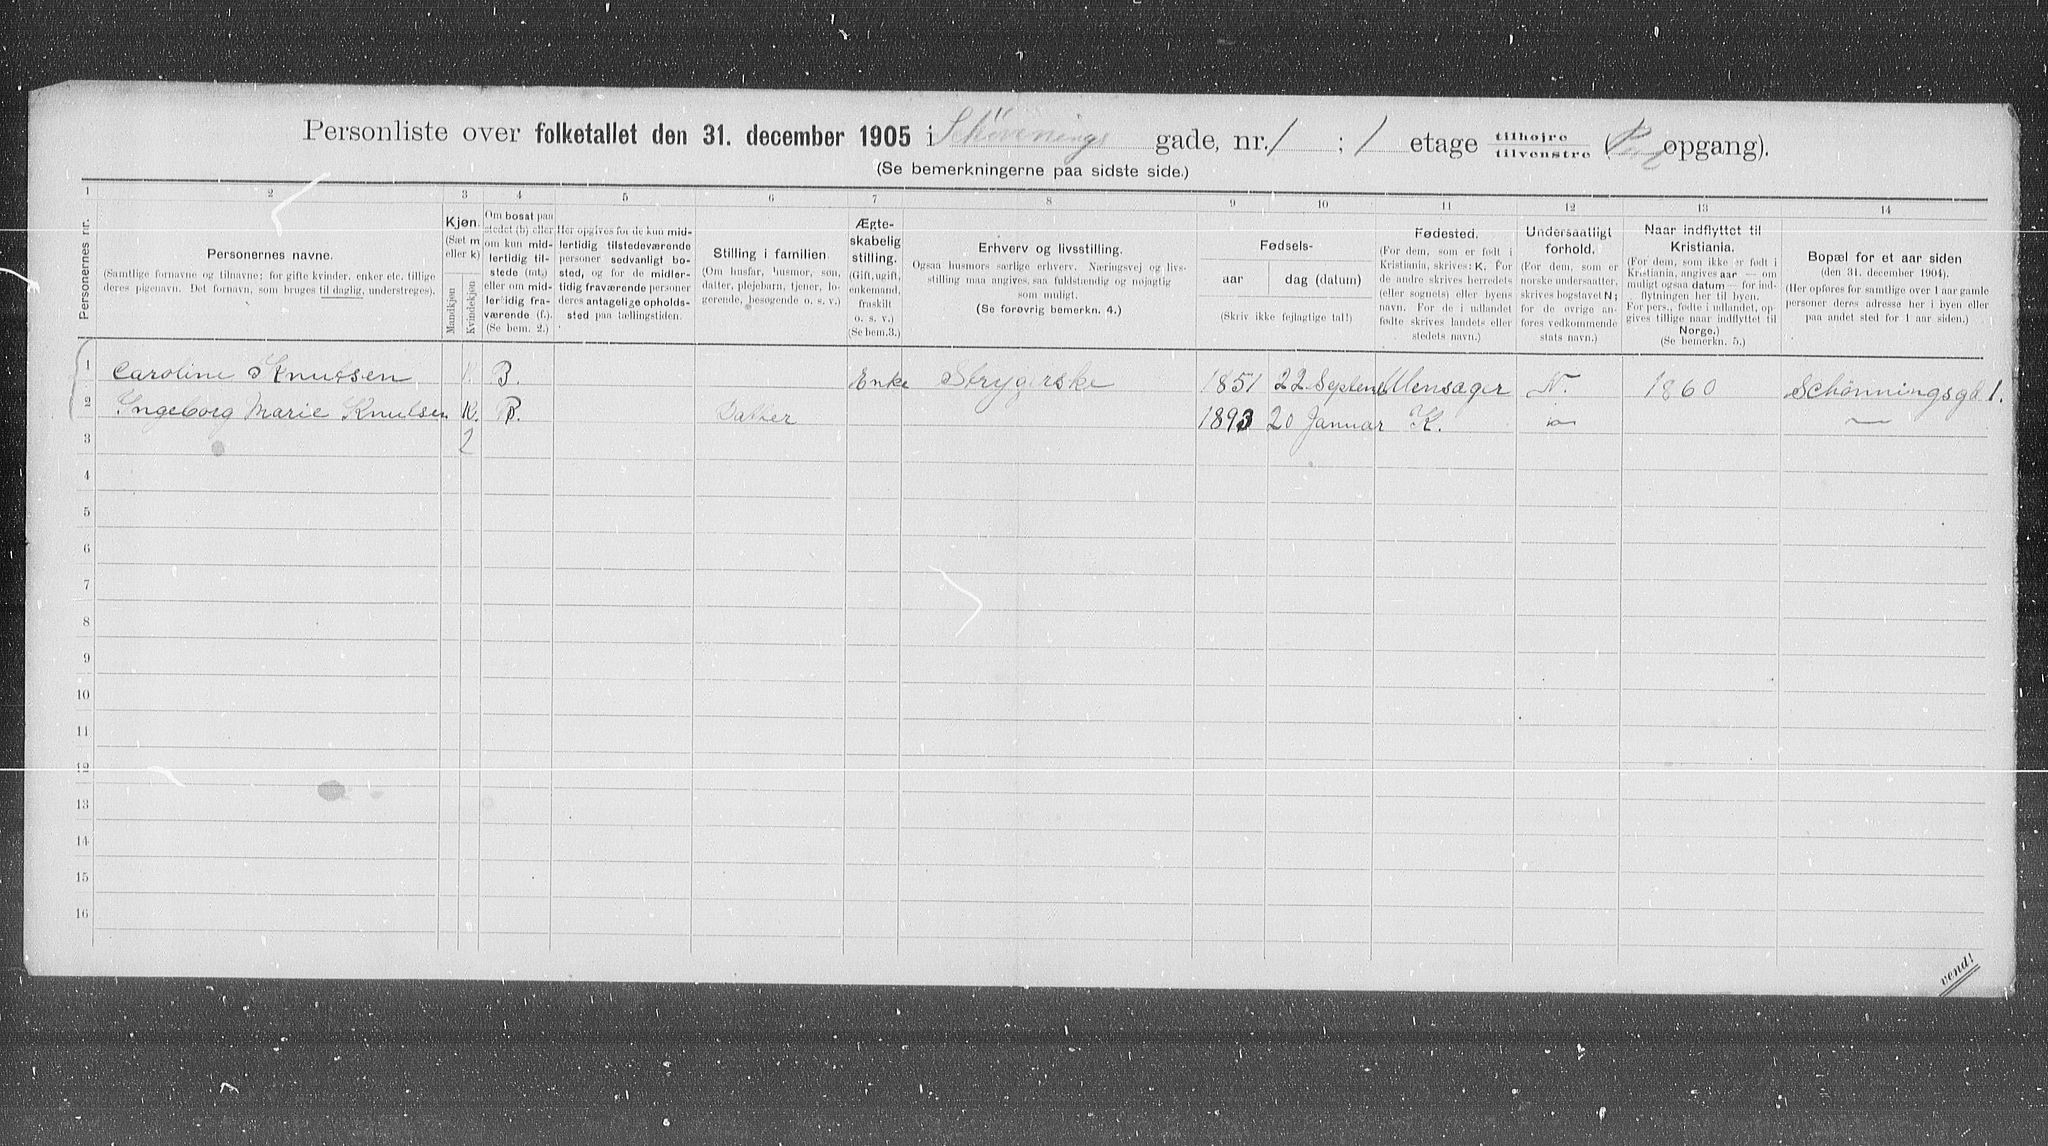 Personliste over folketallet den 31. december 1905 i Schønnings gade, nr. 1 ; 1 etage tilhøjre tilvenstre ( opgang).
(Se bemerkningerne paa sidste side.)
1 2 3 4 5 6 7 8 9 10 11 12 13 14
Personernes nr.
Personernes navne.
(Samtlige fornavne og tilnavne; for gifte kvinder, enker etc. tillige
deres pigenavn. Det fornavn, som bruges til daglig, understreges).
Kjøn.
(Sæt m
eller k)
Mandkjøn
Kvindekjøn
Om bosat paa
stedet (b) eller
om kun mid-
lertidig til-
stede (mt.)
eller om mid-
lertidig fra-
værende (f.).
(Se bem. 2.)
Her opgives for de kun mid-
lertidig tilstedeværende
personer sedvanligt bo-
sted, og for de midler-
tidig fraværende personer
deres antagelige opholds-
sted paa tællingstiden.
Stilling i familien
(Om husfar, husmor, søn,
datter, plejebarn, tjener, lo-
gerende, besøgende o. s. v.)
Ægte-
skabelig
stilling.
(Gift, ugift,
enkemand,
fraskilt
o. s. v.)
(Se bem.3.)
Erhverv og livsstilling.
Ogsaa husmors særlige erhverv. Næringsvej og livs-
stilling maa angives saa fuldstændig og nøjagtig
som muligt.
(Se forøvrig bemerkn. 4.)
Fødsels-
aar dag (datum)
(Skriv ikke fejlagtige tal!)
Fødested.
(For dem, som er født i
Kristiania, skrives: K. For
de andre skrives herredets
(eller sognets) eller byens
navn. For de i udlandet
fødte skrives landets eller
stedets navn.)
Undersaatligt
forhold.
(For dem, som er
norske undersaatter,
skrives bogstavet N;
for de øvrige an-
føres vedkommende
stats navn.)
Naar indflyttet til
Kristiania.
(For dem, som ikke er født i
Kristiania, angives aar — om
muligt ogsaa datum — for ind-
flytningen her til byen.
For pers., fødte i udlandet, op-
gives tillige naar indflyttet til
Norge.)
(Se bemerkn. 5.)
Bopæl for et aar siden
(den 31. december 1904).
(Her opføres for samtlige over 1 aar gamle
personer deres adresse her i byen eller
paa andet sted for 1 aar siden.)
1 Caroline Knutsen B. Enke Strygerske 1851 22 Septemb Ullensager N. 1860 Schønningsgd 1.
2 Ingeborg Marie Knutsen K. B. Datter 1893 20 Januar K. — —
3 2
4
5
6
7
8
9
10
11
12
13
14
15
16
vend!